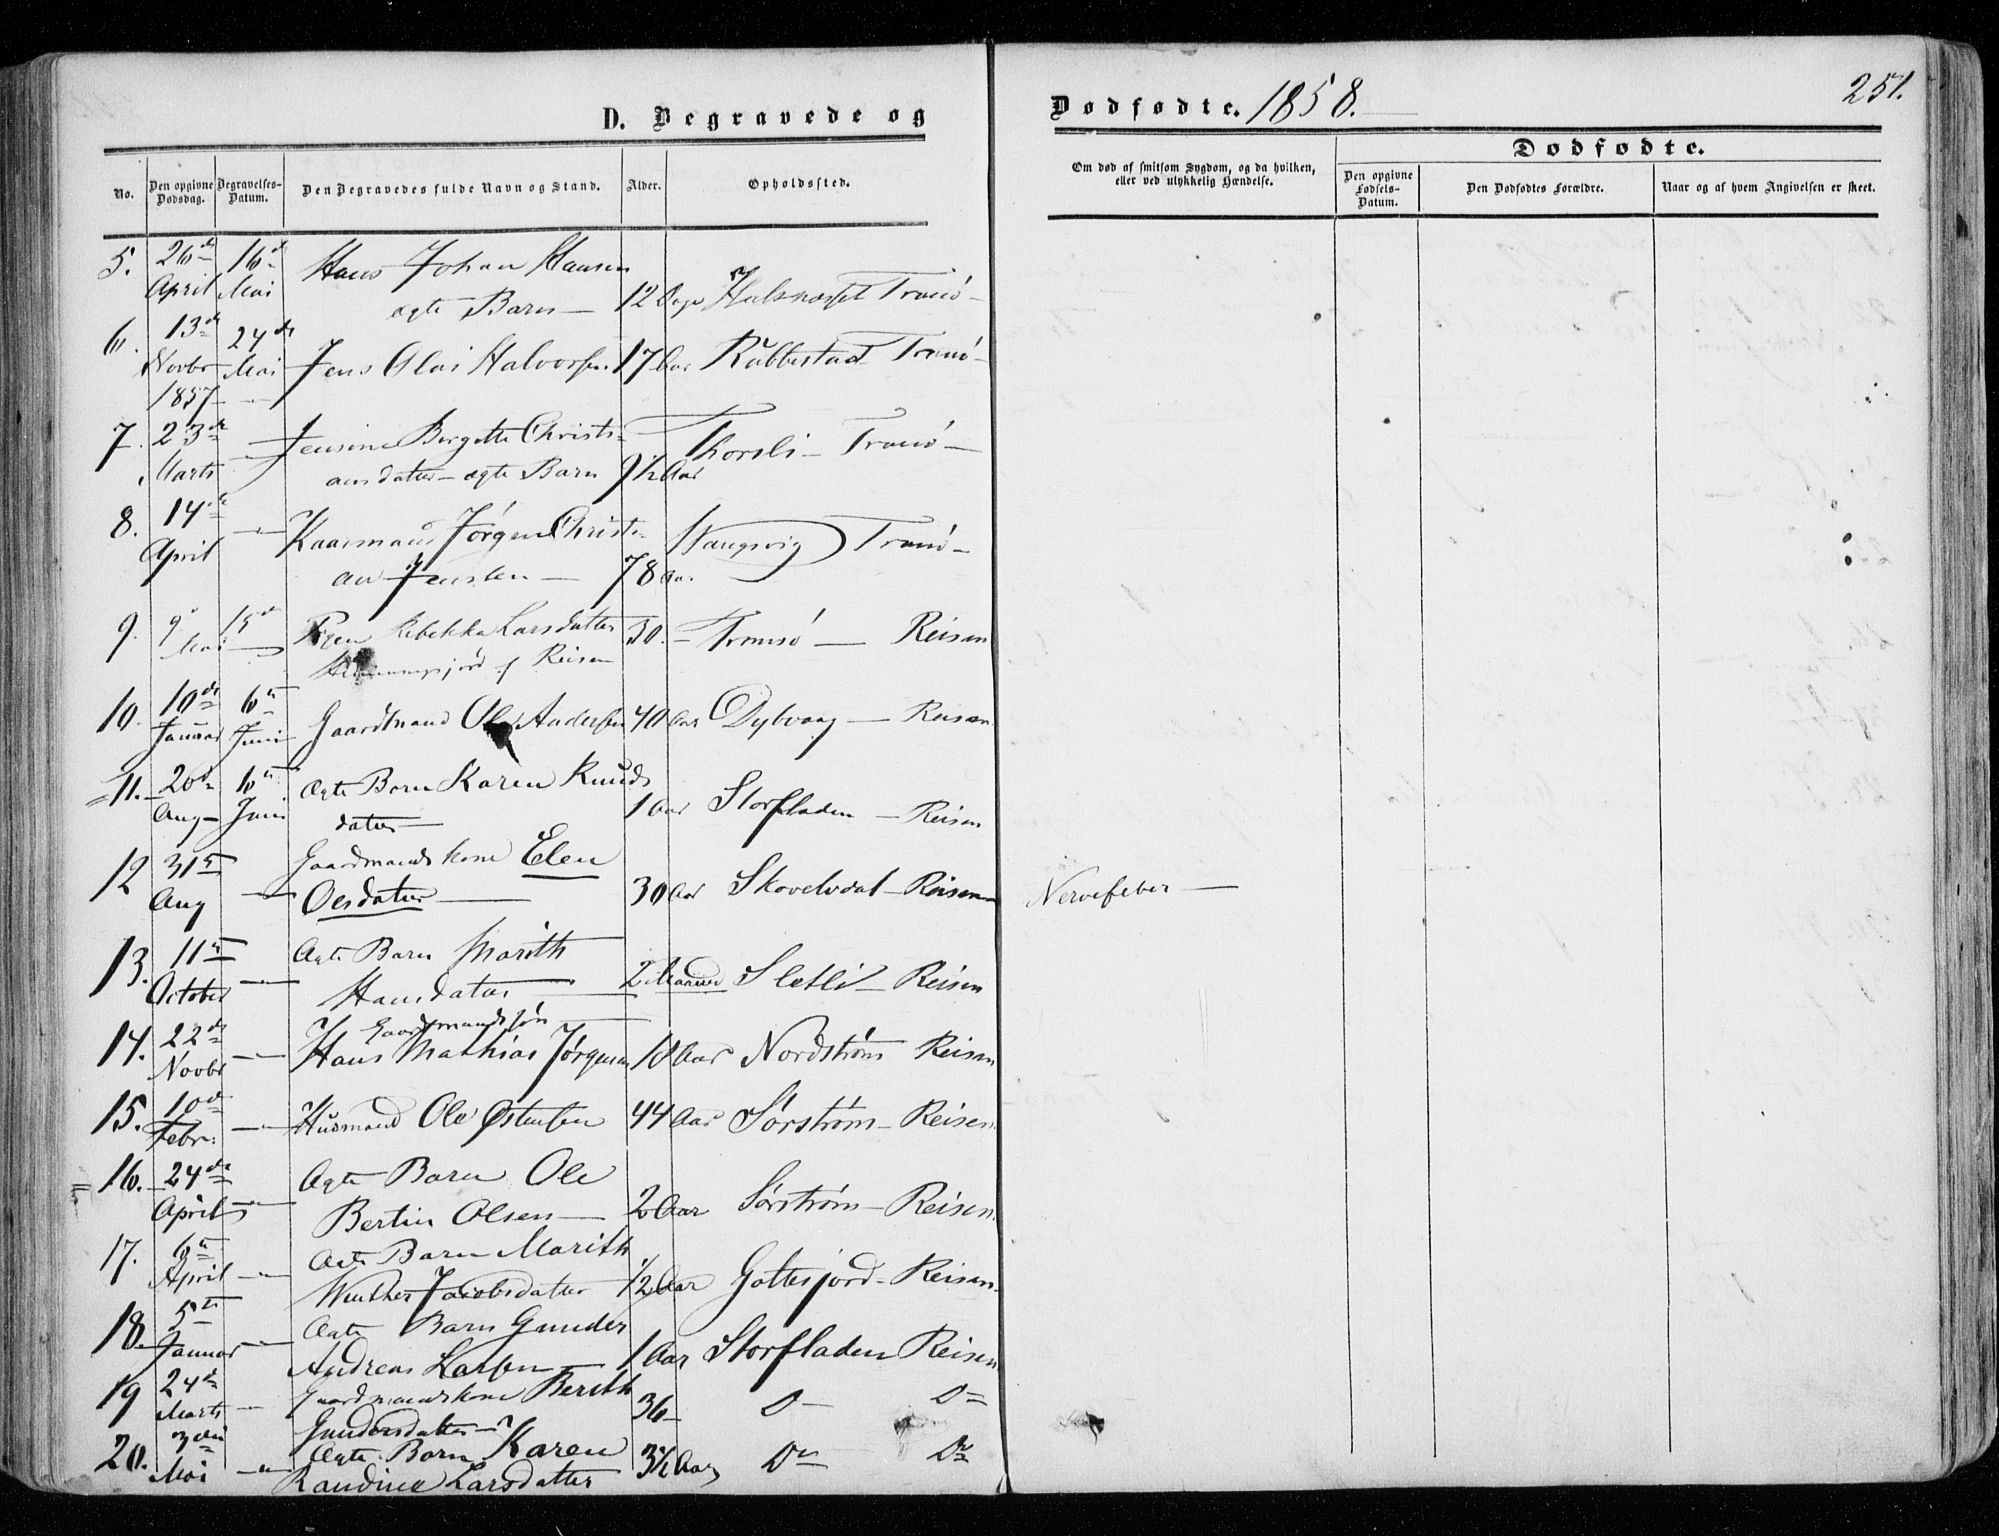 D. Begravede og
Dødfødte. 1858.
251.
No.
Den opgivne Dødsdag.
Begravelses-Datum.
Den Begravedes fulde Navn og Stand.
Alder.
Opholdssted.
Om død af smitsom Sygdom, og da hvilken, eller ved ulykkelig Hændelse.
Dødfødte.
Den opgivne Fødsels-Datum.
Den Dødfødtes Forældre.
Naar og af hvem Angivelsen er skeet.
5. 26de 16de Hans Johan Hansen
April Mai ægte Barn — 12 Dage Tranö —
6. 13de 24de
Novbr Mai Jens Olai Halvorsen 17 Aar Rubbestad Tranö —
1857
7. 23de — Jensine Bergitte Christi- Thorsli — Tranö —
Marts ansdatter — ægte Barn 9½ Aar
8. 14de — Jørgen Christi- Vangsvig Tranö —
April an Jensten — 78 Aar
9. 9de 15de Pigen Rebekka Larsdatter 30 — Tromsö — Reisen
Mai af Reisen
10. 10de 6te Gaardmand Ole Andersen 40 Aar Dybvaag — Reisen
Januar Juni
11. 20de 6te ægte Barn Karen Knuds
Aug — Juni datter — 1 Aar Storfladen — Reisen
12 31te Gaardmands kone Elen
Aug — Olesdatter — 30 Aar Skovelvdal — Reisen — Nervefeber —
13. 11te Ægte Barn Marith
October — Hansdatter 2 Maaneder Sletli — Reisen
14. 22de Gaardmandssøn
Novbr — Hans Mathias Jørgensen 10 Aar Nordstrøm Reisen
15. 10de
Febr. — Husmand Ole Østensen 44 Aar Sørstrøm — Reisen
16. 24de Ægte Barn Ole
April — Bertin Olsen — 2 Aar Sørstrøm — Reisen
17. 6te Ægte Barn Marith
April — Winther Jacobsdatter ½ Aar Gottesjord — Reisen
18. 5te Ægte Barn Gunder
Januar — Andreas Larsen — 1 Aar Storfladen Reisen
19 24de Gaardmandskone Berith
Marts — Gundersdatter — 36 — Do Do
20. Ægte Barn Karen
Mai — Randine Larsdatter 3½ Aar Do Do